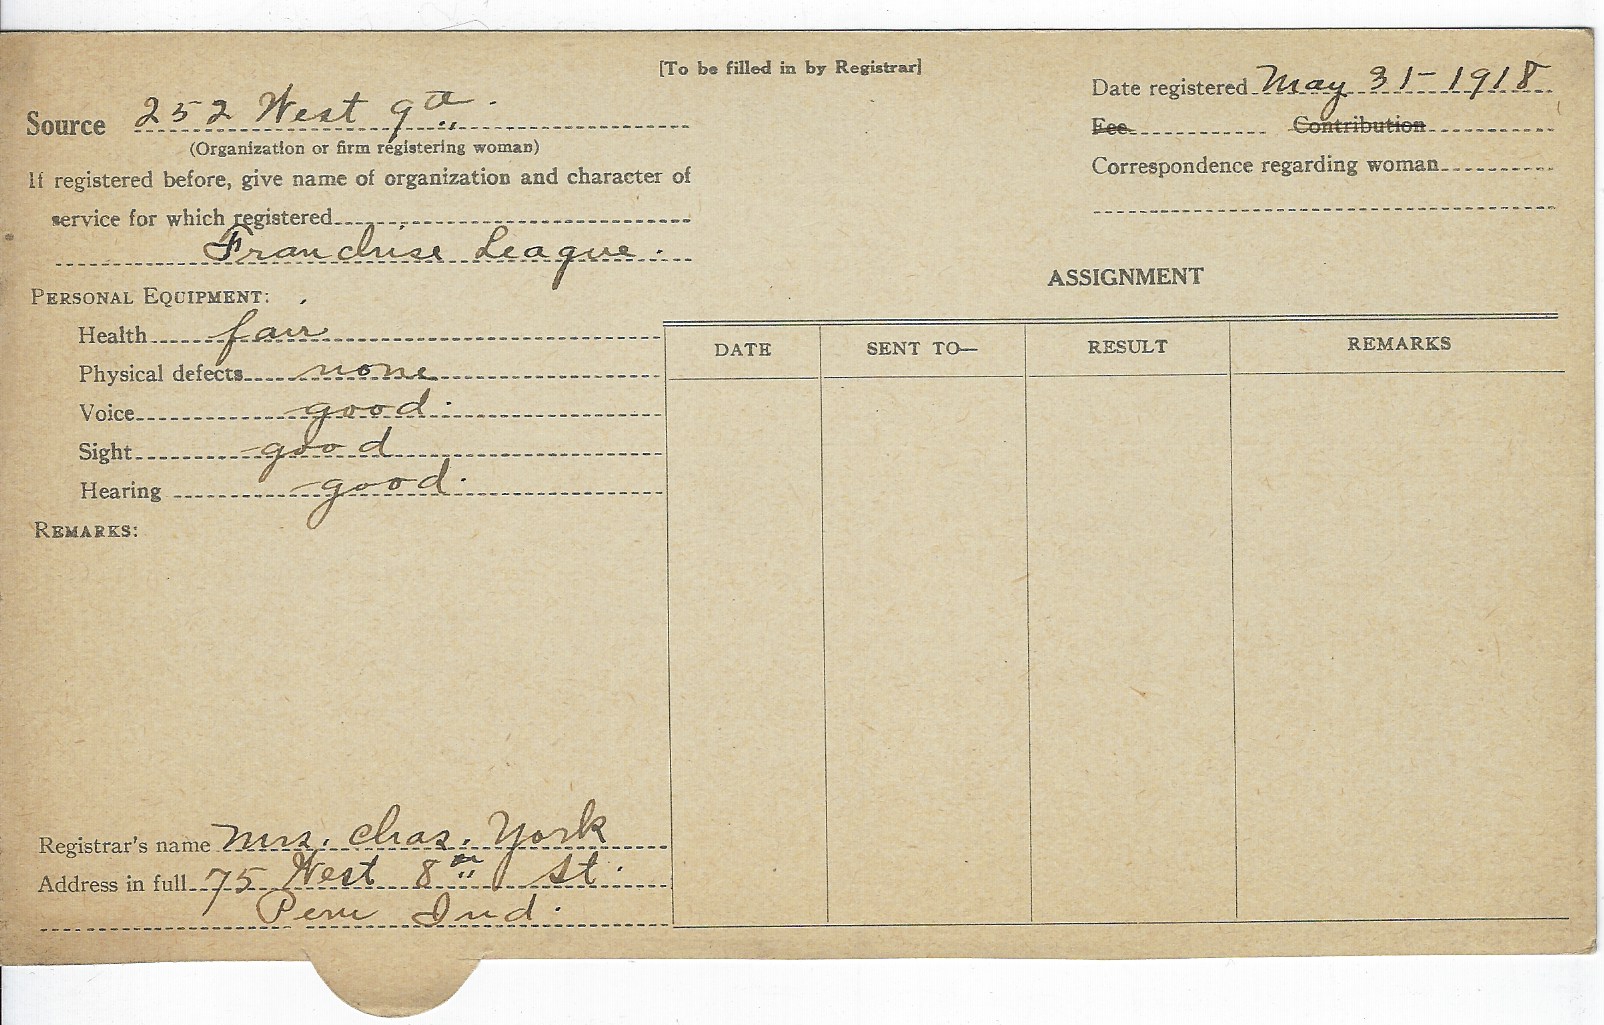 [To be filled in by Registrar]
Source 252 West 9th.
(Organization or firm registering woman)
If registered before, give name of organization and character of
service for which registered
Franchise League.
Date registered May 31-1918
Fee Contribution
Correspondence regarding woman
PERSONAL EQUIPMENT:
Health fair
Physical defects none
Voice good.
Sight good
Hearing good.
REMARKS:
ASSIGNMENT
DATE SENT TO— RESULT REMARKS
Registrar's name Mrs. Chas. York
Address in full 75 West 8th St.
Peru Ind.